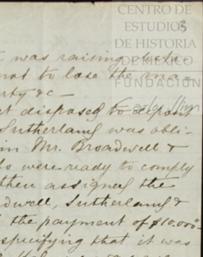 CENTRO DE
ESTUDIOS
DE HISTORIA
DE MEXICO
FUNDACIÓN
3
t was raising
not to lose the
erty &c —
et disposed to
Sutherland was obli-
in Mr. Broadwell &
ho were ready to comply
then assigned the
dwell, Sutherland &
the payment of $10.000
specifying that it was